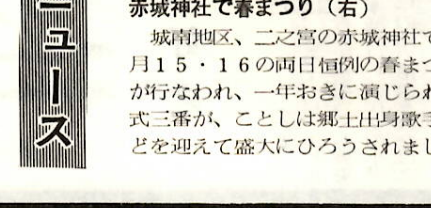 ニュース
赤城神社で春まつり（右）
城南地区、二之宮の赤城神社で
月１５・１６の両日恒例の春まつ
が行なわれ、一年おきに演じられ
式三番が、ことしは郷土出身歌手
どを迎えて盛大にひろうされまし